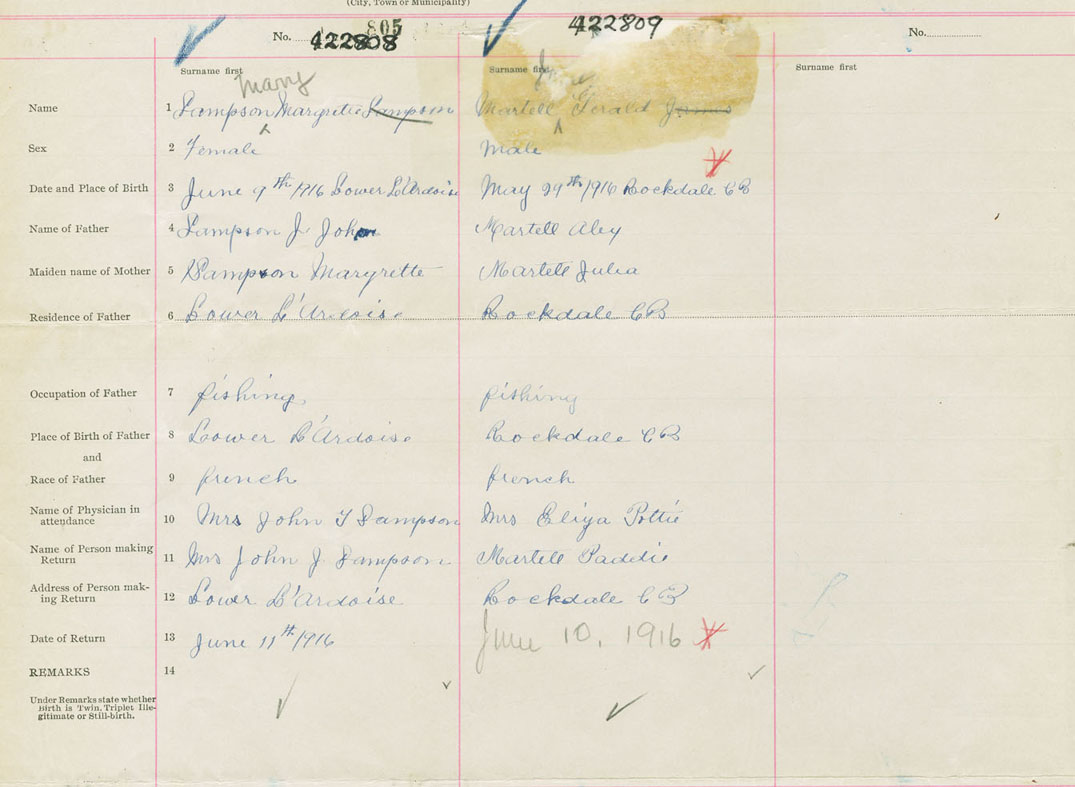 (City, Town or Municipality)
No. 422808 805 422809 No.
Surname first Surname first Surname first
Mary James
Name 1 Sampson Margrette Sampson Martell Gerald James
Sex 2 Female Male
Date and Place of Birth 3 June 9th 1916 Lower L'Ardoise May 29th 1916 Rockdale CB
Name of Father 4 Sampson J John Martell Aley
Maiden name of Mother 5 Sampson Margrette Martell Julia
Residence of Father 6 Lower L'Ardoise Rockdale CB
Occupation of Father 7 fishing fishing
Place of Birth of Father 8 Lower L'Ardoise Rockdale CB
and
Race of Father 9 french french
Name of Physician in
attendance 10 Mrs John T Sampson Mrs Eliza Pottie
Name of Person making
Return 11 Mrs John J Sampson Martell Paddie
Address of Person mak-
ing Return 12 Lower L'Ardoise Rockdale CB
Date of Return 13 June 11th 1916 June 10, 1916
REMARKS 14
Under Remarks state whether
Birth is Twin, Triplet Ille-
gitimate or Still-birth.